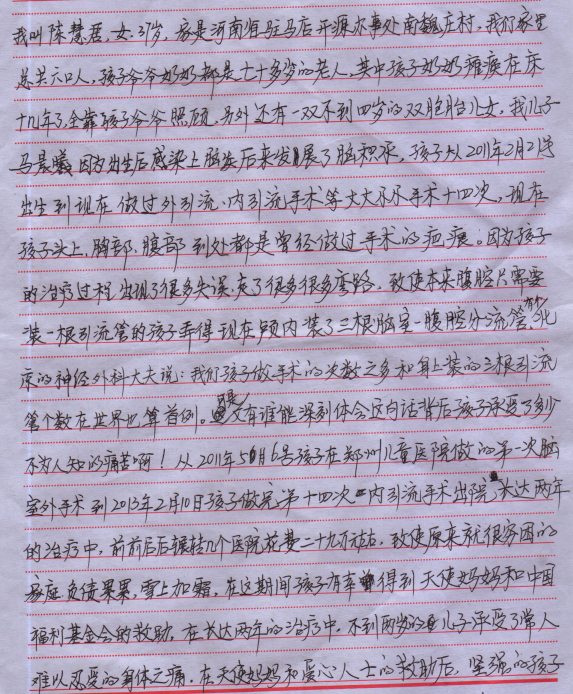 我叫陈慧居,女,31岁,家是河南省驻马店开源办事处南魏庄村,我们家里
总共六口人,孩子爷爷奶奶都是七十多岁的老人,其中孩子奶奶瘫痪在床
十几年了,全靠孩子爷爷照顾,另外还有一双不到四岁的双胞胎儿女,我儿子
马晨曦因为出生后感染上脑炎后来发展了脑积水,孩子从2011年2月21号
出生到现在做过外引流、内引流手术等大大小小手术十四次。现在
孩子头上,胸部,腹部到处都是曾经做过手术的疤痕。因为孩子
的治疗过程出现了很多失误,走了很多很多弯路,致使本来腹腔只需要
装一根引流管的孩子弄得现在颅内装了三根脑室一腹腔分流管,北
京的神经外科大夫说:我们孩子做手术的次数之多和身上装的三根引流
管个数在世界也算首例。又有谁能深刻体会这句话背后孩子承受了多少
不为人知的痛苦啊!从2011年5月6号孩子在郑州儿童医院做的第一次脑
室外手术到2013年2月10日孩子做完第十四次内引流手术出院,长达两年
的治疗中,前前后后辗转几个医院花费二十九万左右,致使原来就很穷困的
家庭负债累累,雪上加霜,在这期间孩子有幸得到天使妈妈和中国
福利基金会的救助,在长达两年的治疗中,不到两岁的儿子承受了常人
难以忍受的身体之痛,在天使妈妈和爱心人士的救助后,坚强的孩子